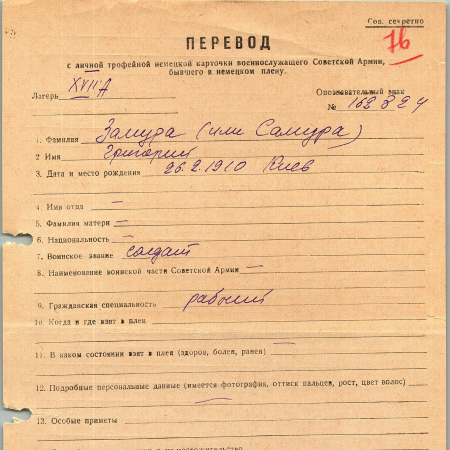 Сов. секретно
76
ПЕРЕВОД
с личной трофейной немецкой карточки военнослужащего Советской Армии,
бывшего в немецком плену.
Лагерь XVII A
Опознавательный знак
№ 162824
1. Фамилия Замура (или Самура)
2 Имя Григорий
3. Дата и место рождения 26.2.1910 Киев
4. Имя отца —
5. Фамилия матери —
6. Национальность —
7. Воинское звание солдат
8. Наименование воинской части Советской Армии —
9. Гражданская специальность рабочий
10. Когда и где взят в плен
11. В каком состоянии взят в плен (здоров, болен, ранен) —
12. Подробные персональные данные (имеется фотография, оттиск пальцев, рост, цвет волос)
—
13. Особые приметы —